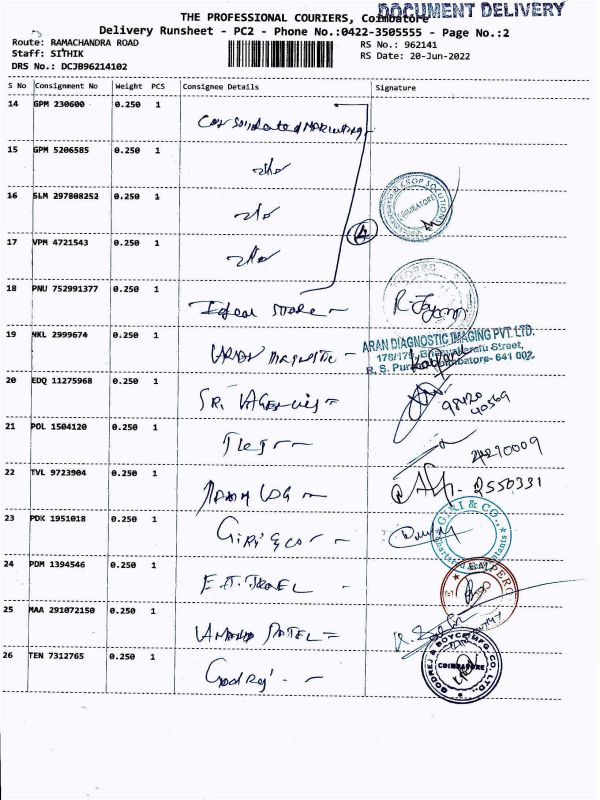 DOCUMENT DELIVERY
THE PROFESSIONAL COURIERS, Coimbatore
Delivery Runsheet - PC2 - Phone No.:0422-3505555 - Page No.:2
Route: RAMACHANDRA ROAD
RS No.: 962141
Staff: SITHIK
RS Date: 20-Jun-2022
DRS No.: DCJB96214102
S No Consignment No Weight PCS Consignee Details Signature
14 GPM 230600 0.250 1
Consolidated Marketing
15 GPM 5206585 0.250 1
16 SLM 297808252 0.250 1
CROP SOLUTIONS
COIMBATORE
17 VPM 4721543 0.250 1
4
18 PNU 752991377 0.250 1
Ideal Store
19 NKL 2999674 0.250 1
ARAN DIAGNOSTIC IMAGING PVT. LTD.
Street,
R. S. Puram, Coimbatore- 641 002
20 EDQ 11275968 0.250 1
SRI
98420
40569
21 POL 1504120 0.250 1
4210009
22 TVL 9723904 0.250 1
2550331
23 PDK 1951018 0.250 1
Giri & Co
GIRI & CO.,
Chartered Accountants
24 PDM 1394546 0.250 1
25 MAA 291072150 0.250 1
PATEL
26 TEN 7312765 0.250 1
Godrej
GODREJ & BOYCE MFG. CO. LTD.
COIMBATORE